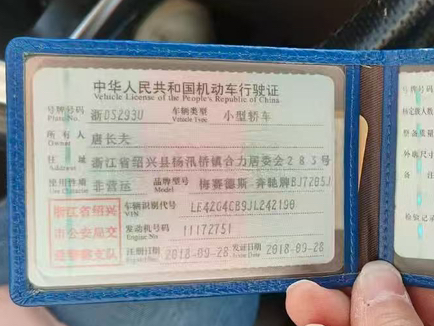 中华人民共和国机动车行驶证
Vehicle License of the People's Republic of China
号牌号码 浙DS293U 车辆类型 小型轿车
Plate No. Vehicle Type
所有人 唐长夫
Owner
住址 浙江省绍兴县杨汛桥镇合力居委会285号
Address
使用性质 非营运 品牌型号 梅赛德斯-奔驰牌BJ7205J
Use Character Model
浙江省绍兴
市公安局交
通警察支队
车辆识别代号
VIN
发动机号码 11172751
Engine No.
注册日期 2018-09-28 发证日期 2018-09-28
Register Date Issue Date
号牌号码
整备质量
外廓尺寸
检验记录